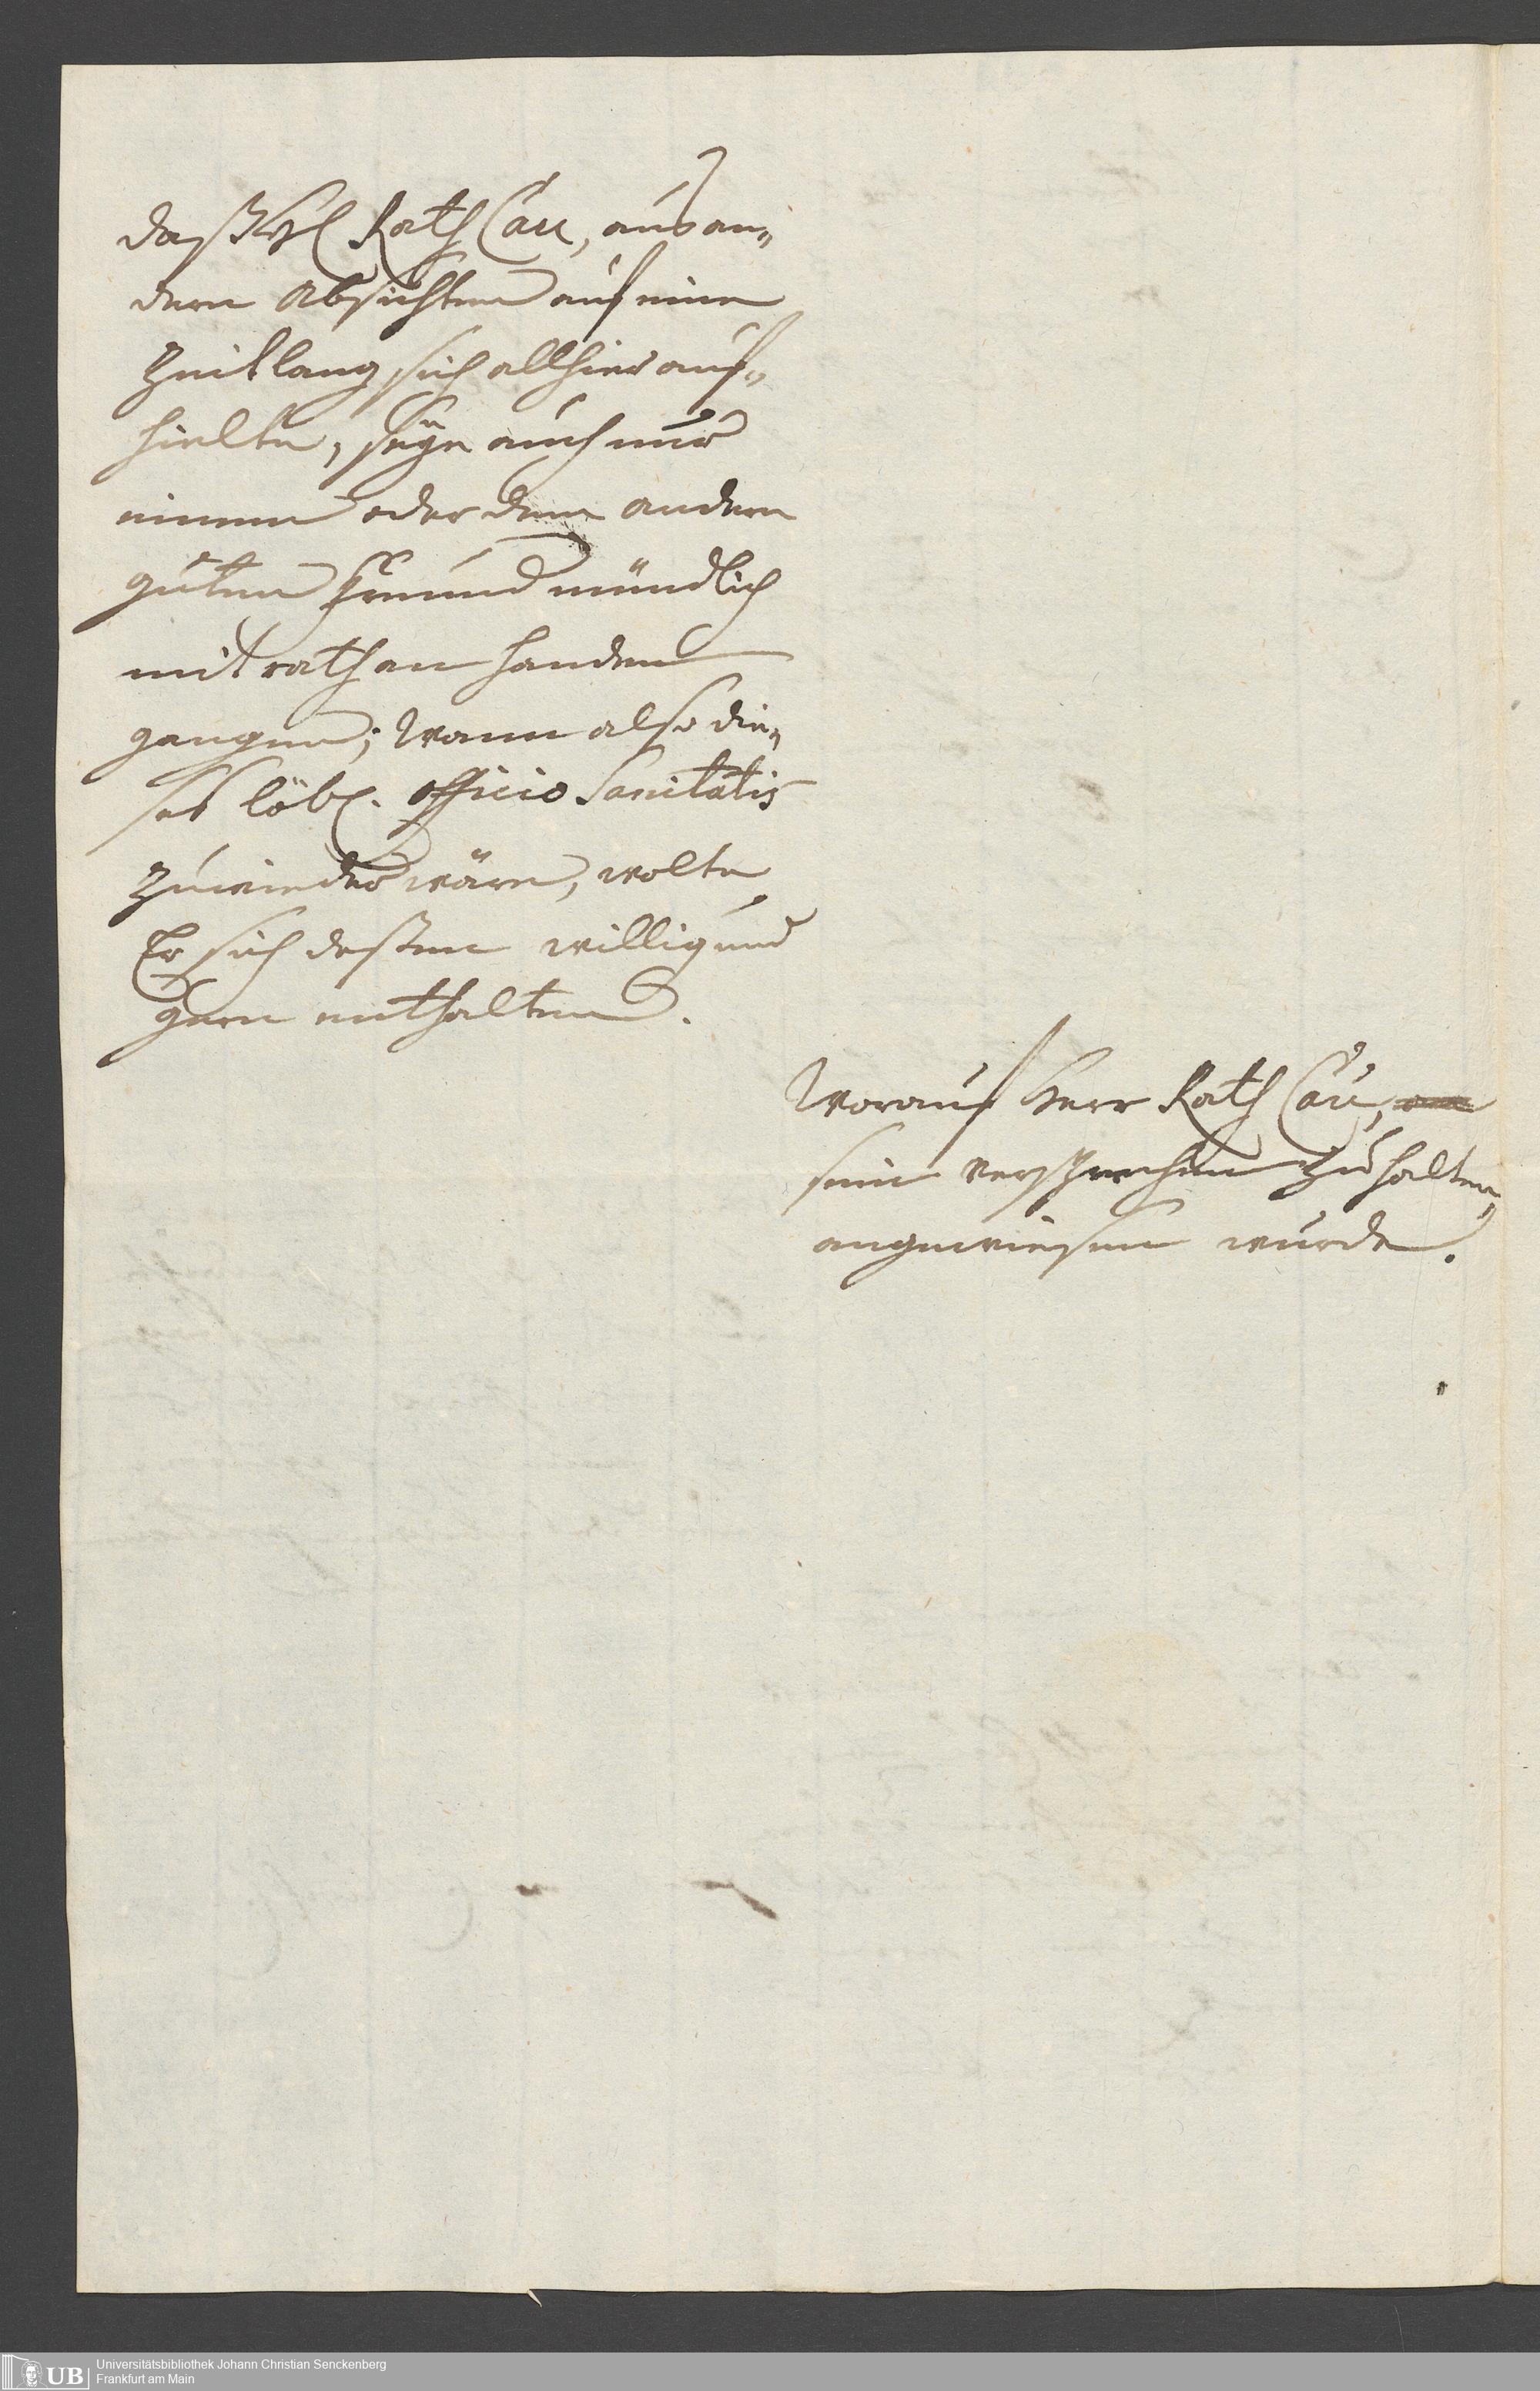 daß Hl Rath Cau, aus an„
dern Absichten auf eine
Zeitlang sich allhier auf„
hielte, seÿe auch nur
einem oder dem andern
guten Freund mündlich
mit rath an handen
gangen; Wann also die„
ses löbl. officio Sanitatis
zuwieder wäre, wolte
Er sich deßen willig und
gern enthalten.
Worauf Herr Rath Cau,
sein versprechen zu halten,
angewiesen wurde.
UB
Universitätsbibliothek Johann Christian Senckenberg
Frankfurt am Main